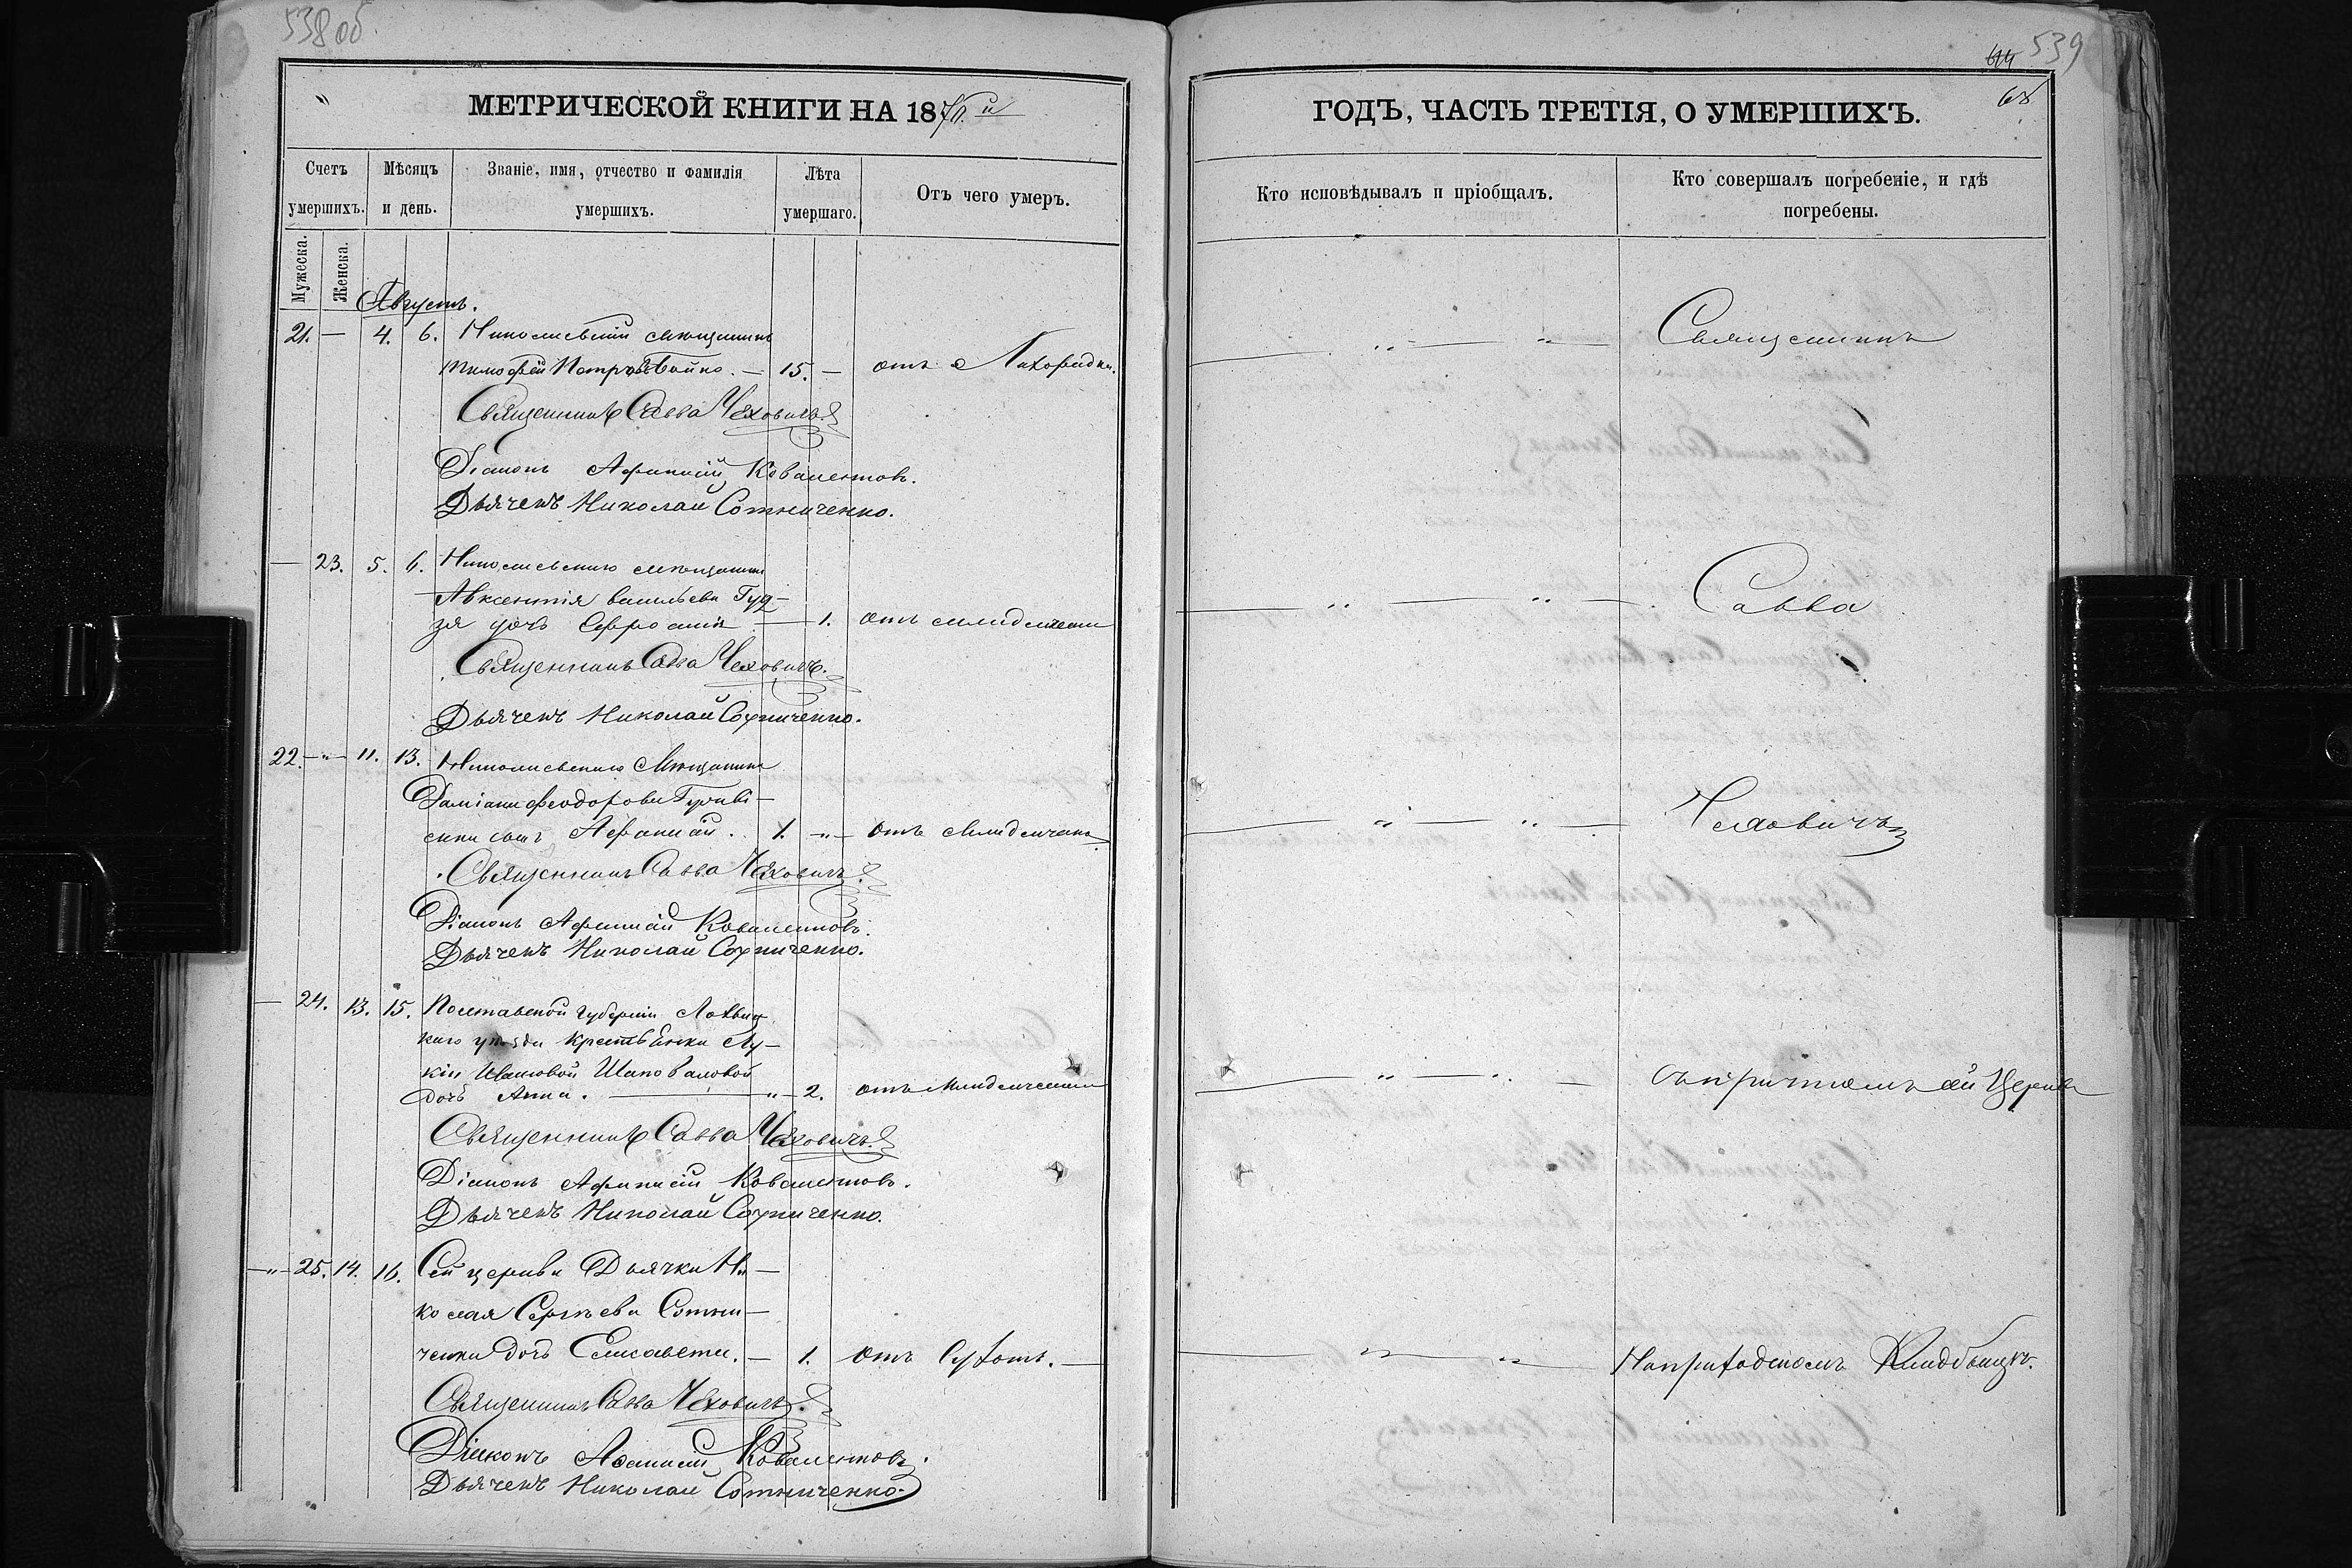 538 об
539
68
МЕТРИЧЕСКОЙ КНИГИ НА 18
ГОДЪ, ЧАСТЬ ТРЕТІЯ, О УМЕРШИХЪ.
Счетъ умершихъ.
Мѣсяцъ и день.
Званіе, имя, отчество и фамилія умершихъ.
Лѣта умершаго.
Отъ чего умеръ.
Кто исповѣдывалъ и пріобщалъ.
Кто совершалъ погребеніе, и гдѣ погребены.
Мужеска.
Женска.
Августъ.
21. — 4. 6. Николаевскій мѣщанинъ
Тимофей Петровъ — 15. — отъ Лихорадки.
Священникъ
Священникъ Савва Чеховичъ
Діаконъ Афанасій Ковалентовъ.
Дьячекъ Николай Сотниченко.
— 23. 5. 6. Николаевскаго мѣщанина
Авксентія Васильева Гуд-
зя дочь Ефросинія — 1. отъ младенчества
Савва
Священникъ Савва Чеховичъ.
Дьячекъ Николай Сотниченко.
22. — " — 11. 13. Николаевскаго Мѣщанина
Даміана Феодорова
сынъ Афанасій. 1. " — отъ младенчества
Чеховичъ
Священникъ Савва Чеховичъ
Діаконъ Афанасій Ковалентовъ.
Дьячекъ Николай Сотниченко.
— 24. 13. 15. Полтавской губерніи Лохвиц
каго уѣзда крестьянки Лу-
кіи Шаповаловой
дочь Анна. — " — 2. отъ младенчества
съ причтомъ сей Церкви
Священникъ Савва Чеховичъ
Діаконъ Афанасій Ковалентовъ.
Дьячекъ Николай Сотниченко.
— " — 25. 14. 16. Сей церкви Дьячка Ни-
колая Сергѣева Сотни-
ченка дочь Елисавета. — 1. отъ Сухотъ. —
На приходскомъ Кладбищѣ.
Священникъ Савва Чеховичъ.
Діаконъ Афанасій Ковалентовъ.
Дьячекъ Николай Сотниченко.